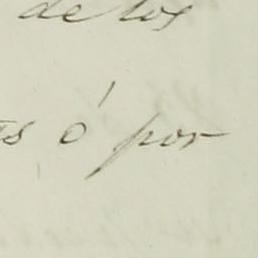 de los
s ó por